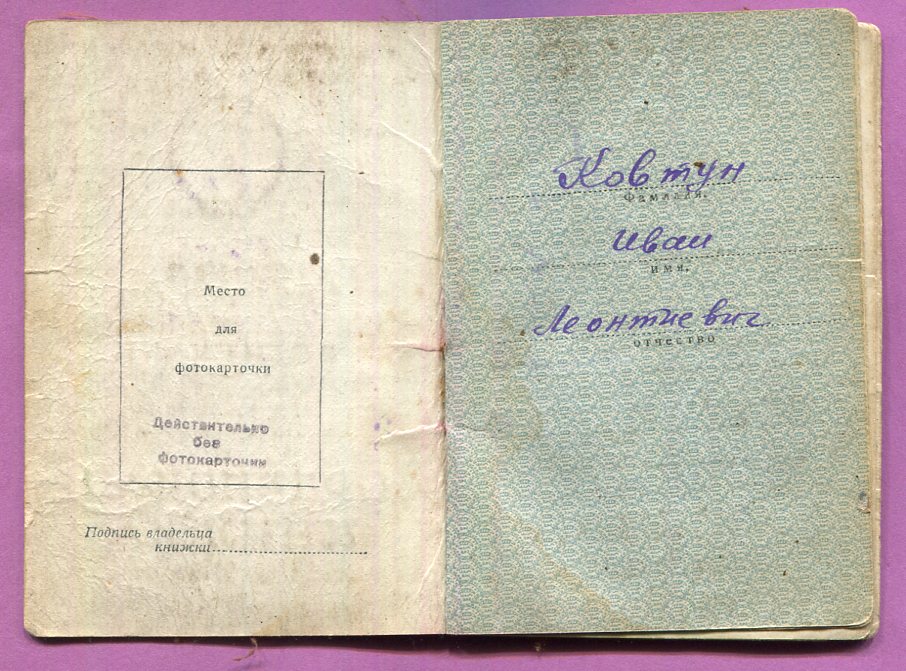 Место
для
фотокарточки
Действительно
без
фотокарточки
Подпись владельца
книжки
Ковтун
Фамилия,
Иван
имя,
Леонтиевич
отчество